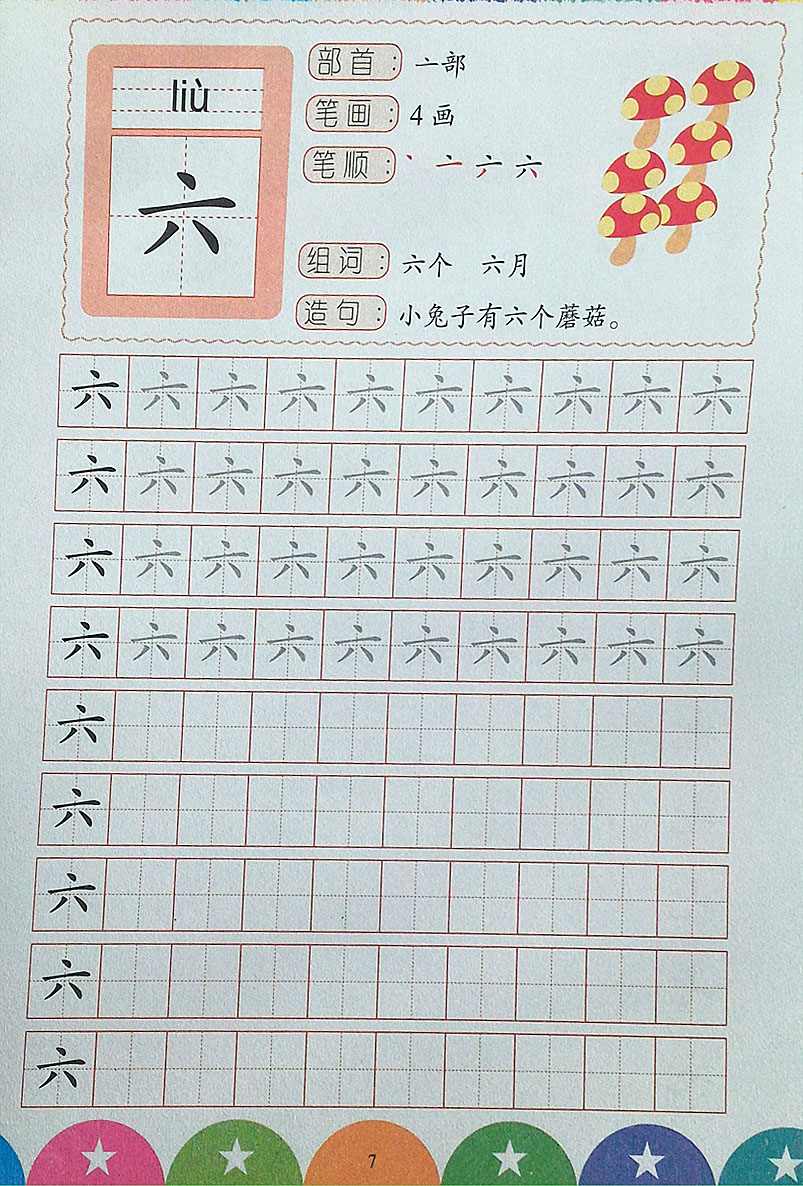 liù
六
部首： 亠部
笔画： 4画
笔顺： 丶 亠 六 六
组词： 六个 六月
造句： 小兔子有六个蘑菇。
六 六 六 六 六 六 六 六 六 六
六 六 六 六 六 六 六 六 六 六
六 六 六 六 六 六 六 六 六 六
六 六 六 六 六 六 六 六 六 六
六
六
六
六
六
7